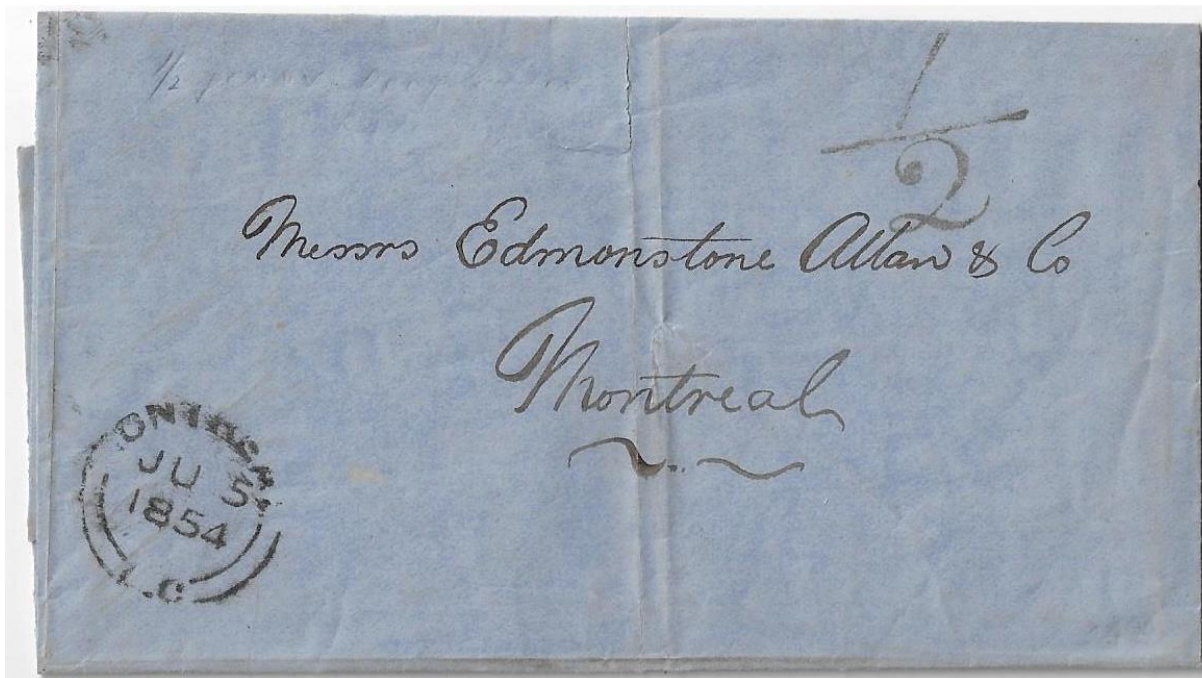 1/2
1/2
Messrs Edmonstone Allan & Co
Montreal
JU 5
1854
L.C